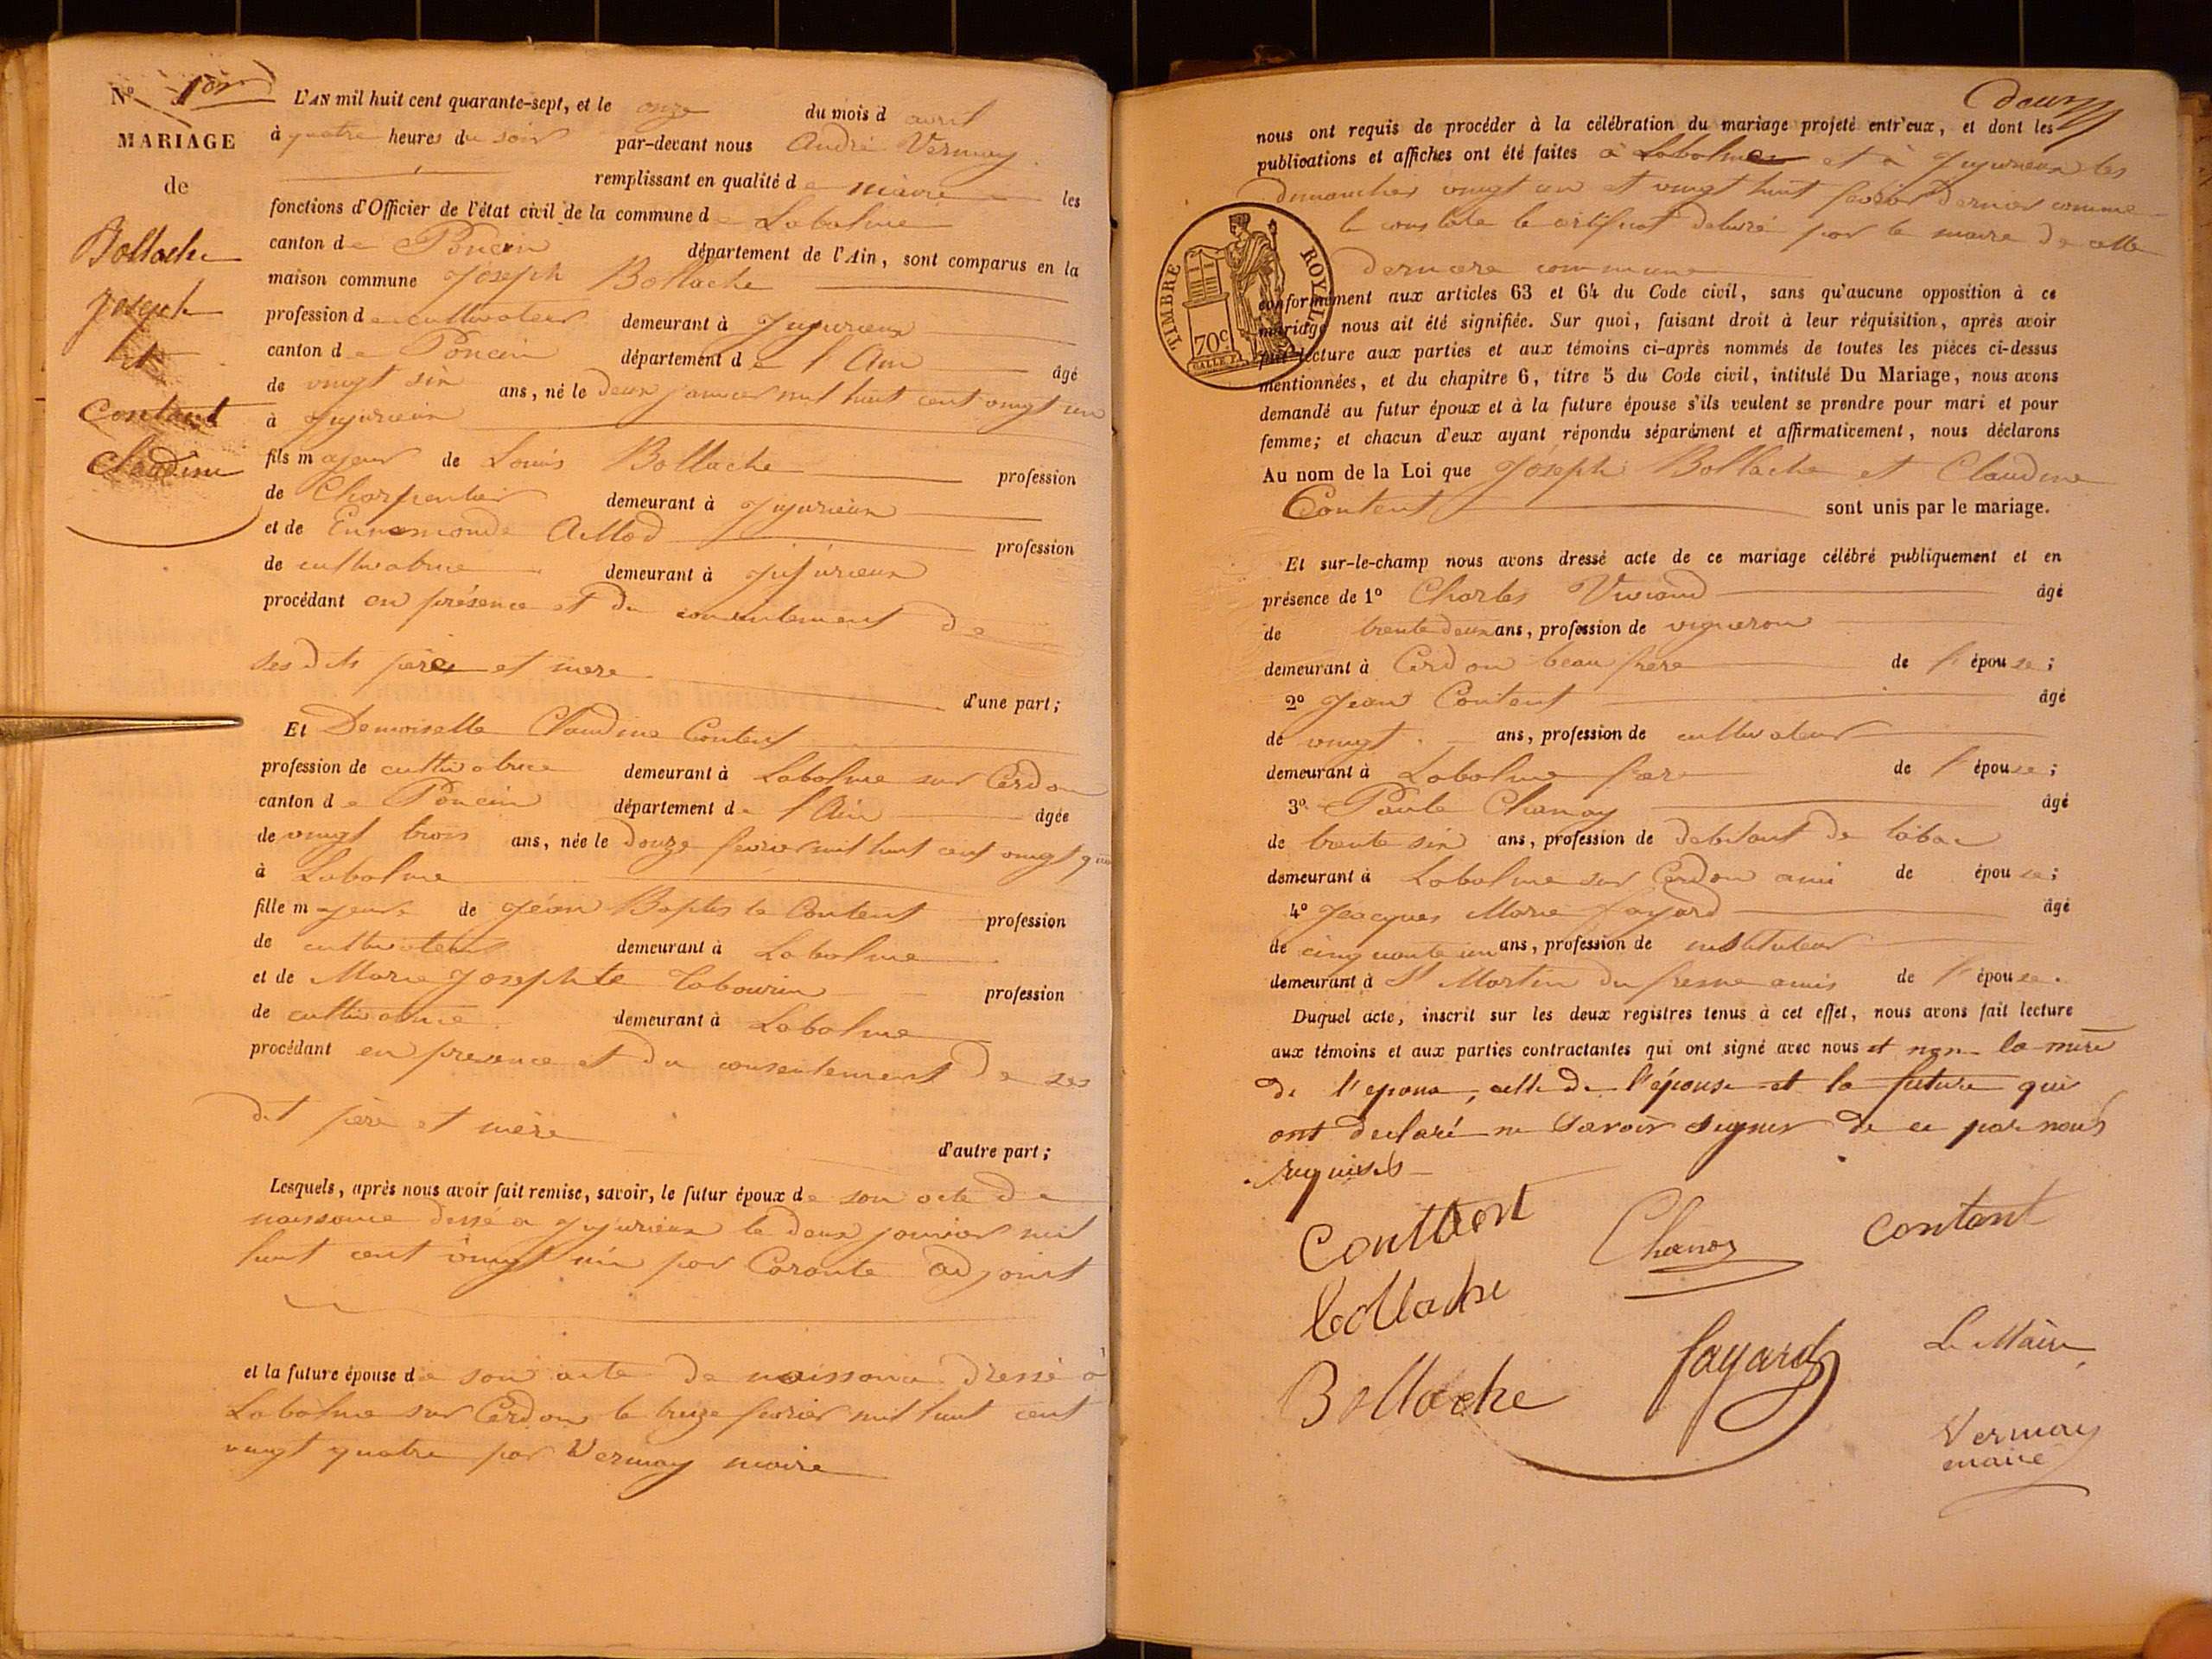 N° 1er
MARIAGE
de
Bollache
Joseph
et
Contant
Claudine
L'AN mil huit cent quarante-sept, et le onze du mois d avril
à quatre heures du soir par-devant nous André Vermay
remplissant en qualité de maire les
fonctions d'Officier de l'état civil de la commune de Labalme
canton de Poncin département de l'Ain, sont comparus en la
maison commune Joseph Bollache
profession de cultivateur demeurant à Jujurieux
canton de Poncin département de l'Ain âgé
de vingt six ans, né le deux janvier mil huit cent vingt un
à Jujurieux
fils majeur de Louis Bollache profession
de Charpentier demeurant à Jujurieux
et de Ennemonde Allod profession
de cultivatrice demeurant à Jujurieux
procédant en présence et du consentement de
ses dits père et mere
d'une part;
Et Demoiselle Claudine Content
profession de cultivatrice demeurant à Labalme sur Cerdon
canton de Poncin département de l'Ain âgée
de vingt trois ans, née le douze fevrier mil huit cent vingt
à Labalme
fille majeure de Jean Baptiste Content profession
de cultivateur demeurant à Labalme
et de Marie Josephte Tabourin profession
de cultivatrice demeurant à Labalme
procédant en presence et du consentement de ses
dit père et mère
d'autre part;
Lesquels, après nous avoir fait remise, savoir, le futur époux de son acte de
naissance dressé a Jujurieux le deux janvier mil
huit cent vingt un par Caronte adjoint
et la future épouse de son acte de naissance dressé à
Labalme sur Cerdon le treize fevrier mil huit cent
vingt quatre par Vermay maire
deux
nous ont requis de procéder à la célébration du mariage projeté entr'eux, et dont les
publications et affiches ont été faites à Labalme et à Jujurieux les
dimanches vingt un et vingt huit fevrier dernier comme
le constate le certificat delivré par le maire de cette
derniere commune
TIMBRE ROYAL
70c
conformément aux articles 63 et 64 du Code civil, sans qu'aucune opposition à ce
mariage nous ait été signifiée. Sur quoi, faisant droit à leur réquisition, après avoir
fait lecture aux parties et aux témoins ci-après nommés de toutes les pièces ci-dessus
mentionnées, et du chapitre 6, titre 5 du Code civil, intitulé Du Mariage, nous avons
demandé au futur époux et à la future épouse s'ils veulent se prendre pour mari et pour
femme; et chacun d'eux ayant répondu séparément et affirmativement, nous déclarons
Au nom de la Loi que Joseph Bollache et Claudine
Content sont unis par le mariage.
Et sur-le-champ nous avons dressé acte de ce mariage célébré publiquement et en
présence de 1° Charles Viviand âgé
de trente deux ans, profession de vigneron
demeurant à Cerdon beau frère de l'épouse;
2° Jean Content âgé
de vingt ans, profession de cultivateur
demeurant à Labalme frere de l'épouse;
3° Paule Chanay âgé
de trente six ans, profession de debitant de tabac
demeurant à Labalme sur Cerdon ami de épouse;
4° Jeacques Marie fayard âgé
de cinquante un ans, profession de instituteur
demeurant à St Martin du fresne amis de l'épouse.
Duquel acte, inscrit sur les deux registres tenus à cet effet, nous avons fait lecture
aux témoins et aux parties contractantes qui ont signé avec nous et non la mère
de l'epoux, celle de l'épouse et la future qui
ont declaré ne savoir signer de ce par nous
requises
Conttent Chanay contant
bollache
Bollache fayard Le Maire
Vermay
maire